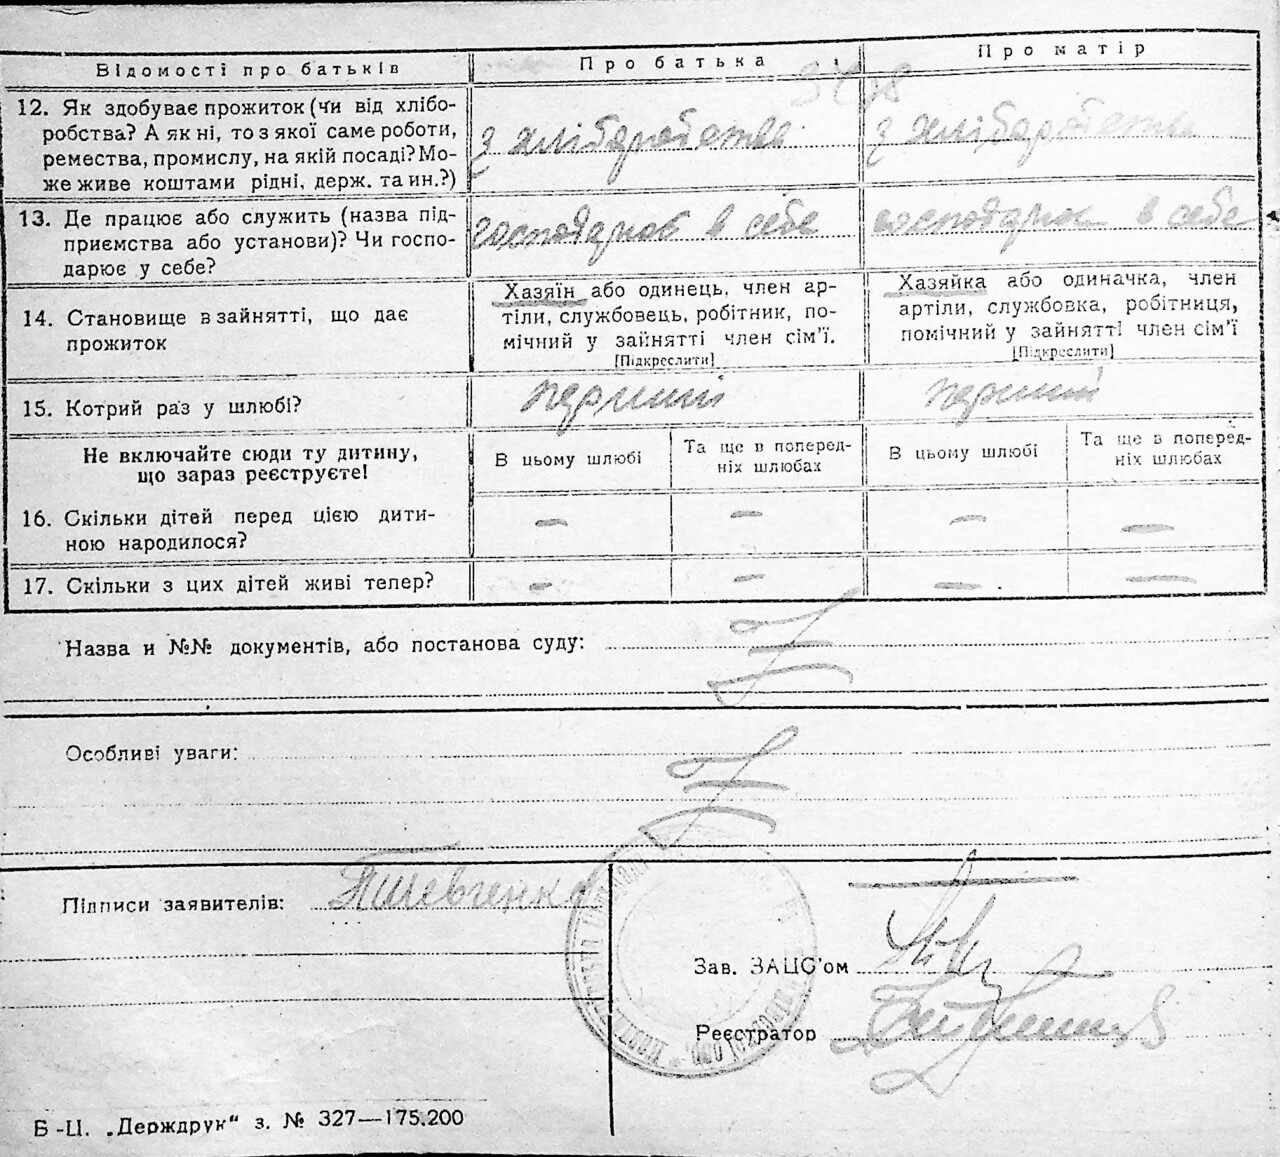 Відомості про батьків
Про батька
Про матір
12. Як здобуває прожиток (чи від хлібо-
робства? А як ні, то з якої саме роботи,
ремества, промислу, на якій посаді? Мо-
же живе коштами рідні, держ. та ин.?)
з хліборобства
з хліборобства
13. Де працює або служить (назва під-
приємства або установи)? Чи госпо-
дарює у себе?
господарює в себе
господарює в себе
14. Становище в зайнятті, що дає
прожиток
Хазяїн або одинець, член ар-
тіли, службовець, робітник, по-
мічний у зайнятті член сім'ї.
[Підкреслити]
Хазяйка або одиначка, член
артіли, службовка, робітниця,
помічний у зайнятті член сім'ї
[Підкреслити]
15. Котрий раз у шлюбі?
перший
перший
Не включайте сюди ту дитину,
що зараз реєструєте!
В цьому шлюбі
Та ще в поперед-
ніх шлюбах
В цьому шлюбі
Та ще в поперед-
ніх шлюбах
16. Скільки дітей перед цією дити-
ною народилося?
— — — —
17. Скільки з цих дітей живі тепер?
— — — —
Назва и №№ документів, або постанова суду:
Особливі уваги:
Підписи заявителів: Шевченко
Зав. ЗАЦС'ом
Реєстратор
Б-Ц. „Держдрук“ з. № 327—175.200